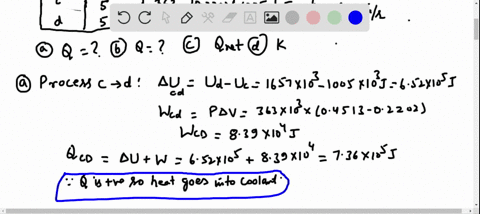 d 5
ⓐ Q = ? ⓑ Q = ? ⓒ Qnet ⓓ K
ⓐ Process c→d : ΔUcd = Ud - Uc = 1657×10³ - 1005×10³ J = 6.52×10⁵ J
Wcd = PΔV = 363×10³ × (0.4513 - 0.2202)
WCD = 8.39×10⁴ J
QCD = ΔU + W = 6.52×10⁵ + 8.39×10⁴ = 7.36×10⁵ J
∵ Q is +ve so heat goes into coolant.